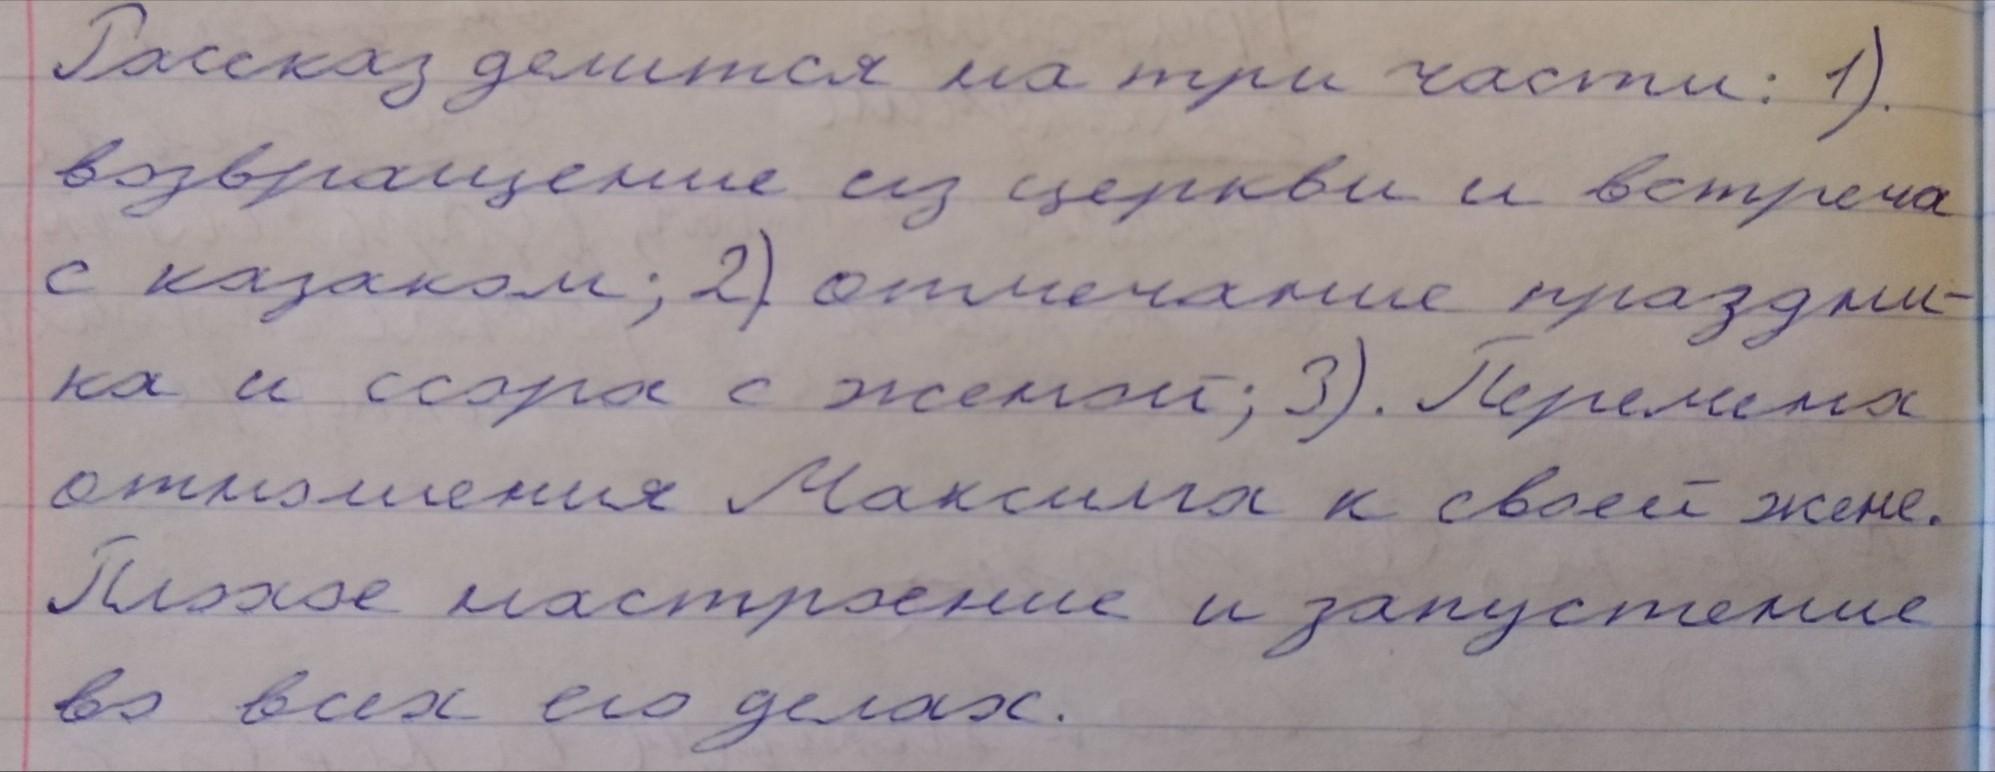 Рассказ делится на три части: 1).
возвращение из церкви и встреча
с казаком; 2) отмечание праздни-
ка и ссора с женой; 3). Перемена
отношения Максима к своей жене.
Плохое настроение и запустение
во всех его делах.